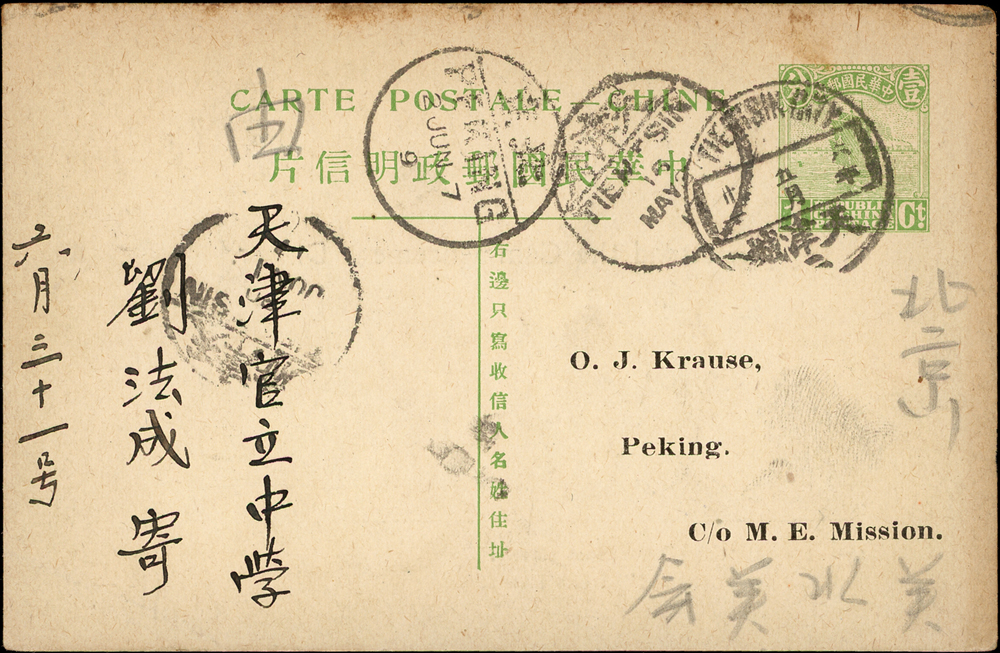 CARTE POSTALE — CHINE
片信明政郵國民華中
右邊只寫收信人名姓住址
壹
中華民國郵政
1 Ct.
PEKING
2 JUN 7
9
TIENTSIN
MAY
TIENTSIN CITY
五月
天津
O. J. Krause,
Peking.
C/o M. E. Mission.
北京
美以美会
由
天津官立中学
劉法成 寄
六月三十一号